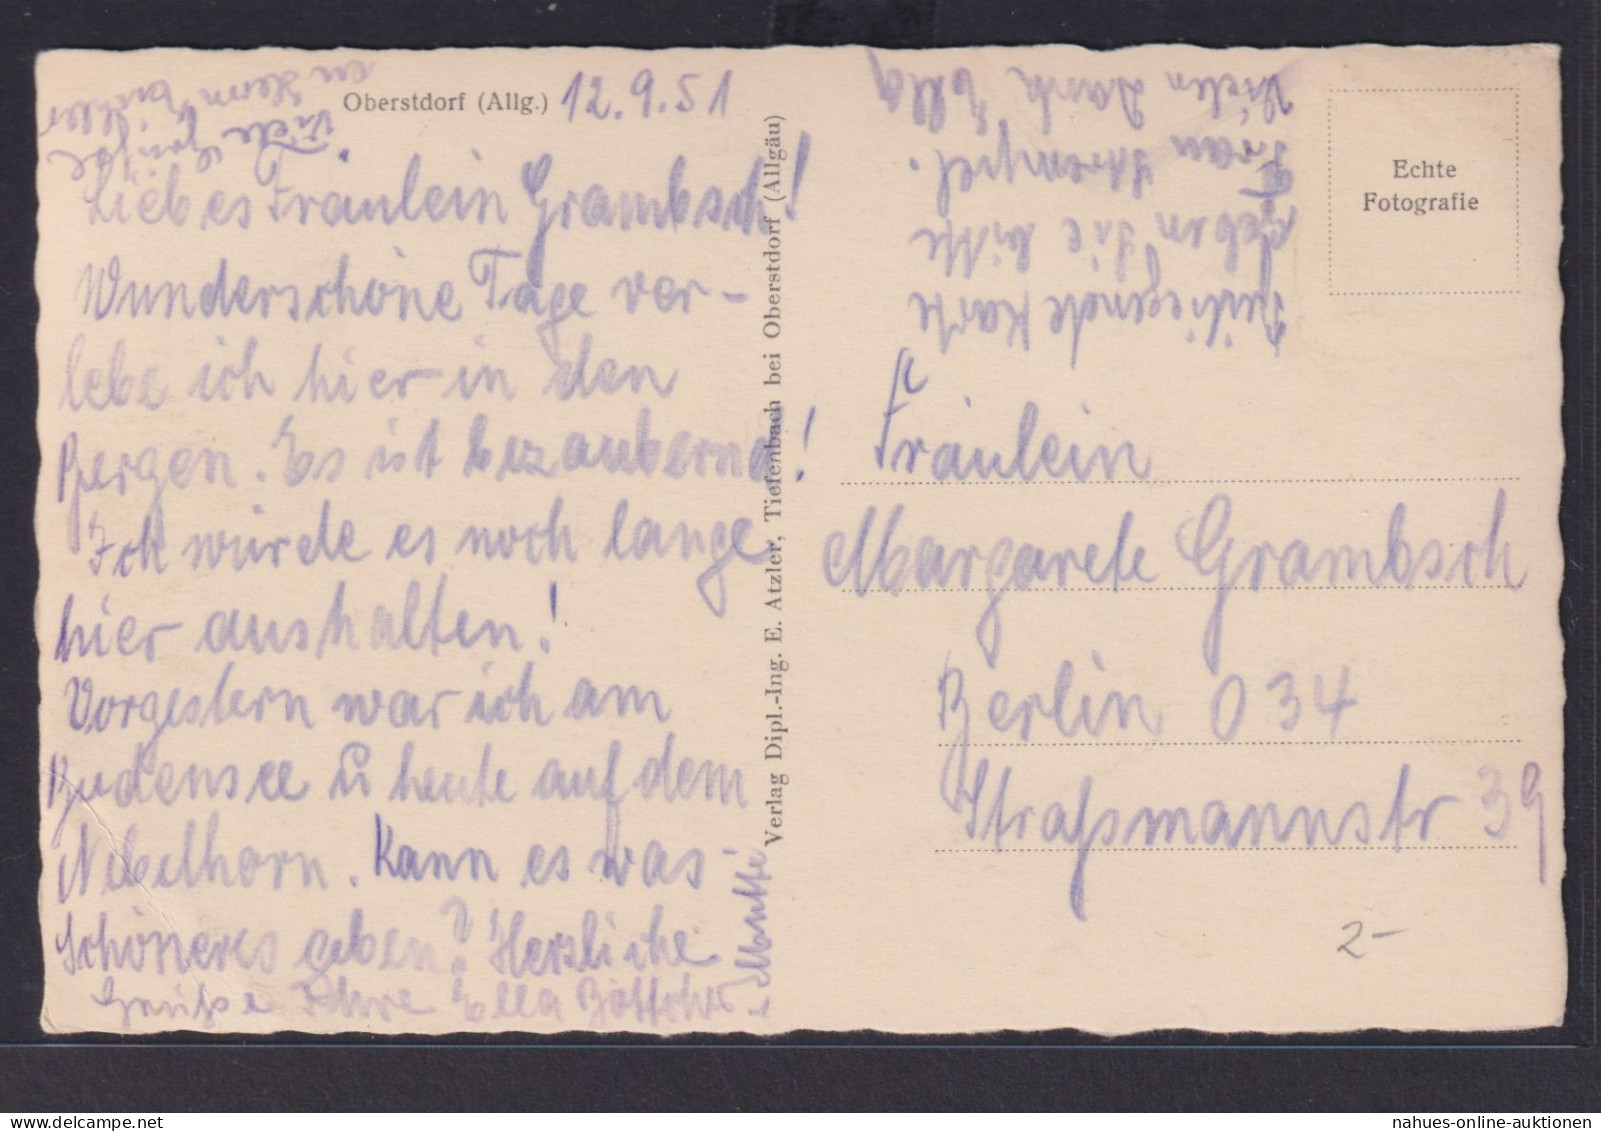 Oberstdorf (Allg.) 12.9.51
Liebes Fräulein Grambsch!
Wunderschöne Tage ver-
lebe ich hier in den
Bergen. Es ist bezaubernd!
Ich würde es noch lange
hier aushalten!
Vorgestern war ich am
Bodensee u heute auf dem
Nebelhorn. Kann es was
Schöneres geben? Herzliche
Grüße Ihre Ella Böttcher
u. Mutti
Viele Grüße
an Herrn
Verlag Dipl.-Ing. E. Atzler, Tiefenbach bei Oberstdorf (Allgäu)
Beiliegende Karte
geben Sie bitte
Frau
Vielen Dank Ella
Echte
Fotografie
Fräulein
Margarete Grambsch
Berlin O 34
Straßmannstr 39
2-
nahues-online-auktionen